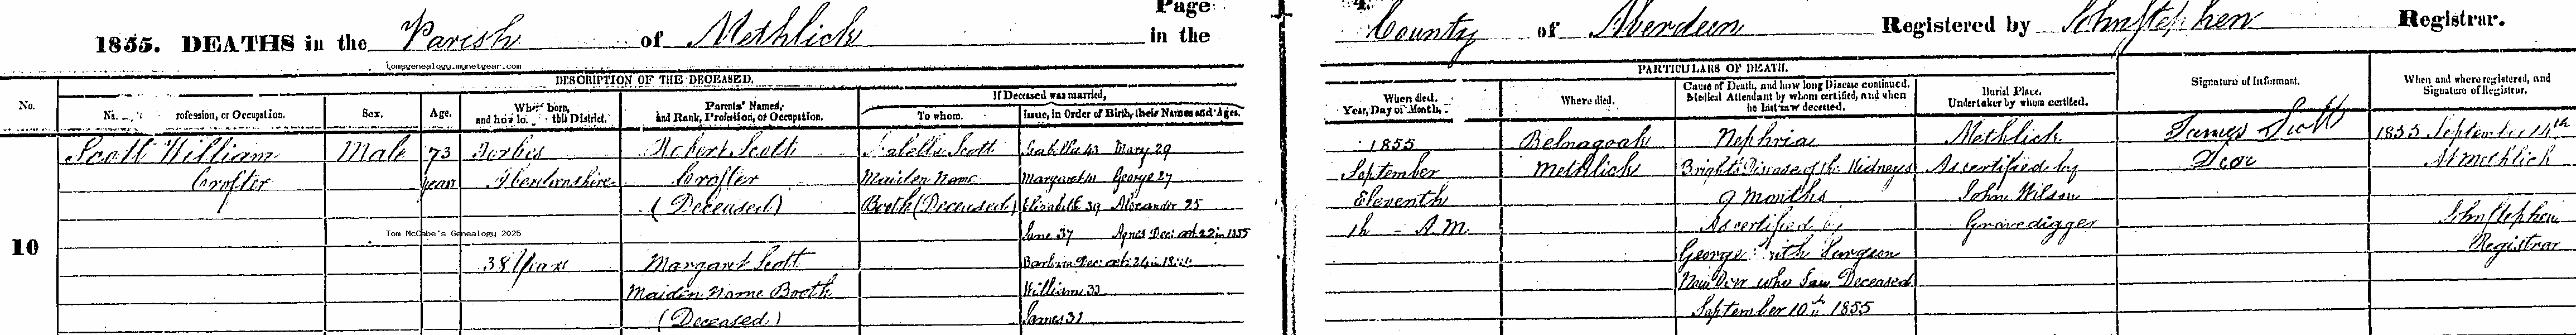 Page 4.
1855. DEATHS in the Parish of Methlick in the County of Aberdeen Registered by John Stephen Registrar.
tomsgenealogy.mynetgear.com
DESCRIPTION OF THE DECEASED.
PARTICULARS OF DEATH.
No.
rofession, or Occupation.
Sex.
Age.
born,
and how lo this District.
Parents' Names,
and Rank, Profession, or Occupation.
If Deceased was married,
To whom.
Issue, in Order of Birth, their Names and Ages.
When died.
Year, Day of Month.
Where died.
Cause of Death, and how long Disease continued.
Medical Attendant by whom certified, and when
he last saw deceased.
Burial Place.
Undertaker by whom certified.
Signature of Informant.
When and where registered, and
Signature of Registrar.
10
Scott William
Crofter
Male
73
years
Forbis
Aberdeenshire
38 Years
Robert Scott
Crofter
(Deceased)
Margaret Scott
Maiden Name Booth
(Deceased)
Isabella Scott
Maiden Name
Booth (Deceased)
Isabella 43 Mary 29
Margaret 41 George 27
Elizabeth 39 Alexander 25
Jane 37 Agnes Dec: at 22 in 1855
Barbara Dec: at 24 in
William 33
James 31
Tom McCabe's Genealogy 2025
1855
September
Eleventh
1h - A.M.
Belnagoak
Methlick
Nephria
Bright's Disease of the Kidneys
9 months
As certified by
George Surgeon
New Deer who saw Deceased
September 10th 1855
Methlick
As certified by
John Wilson
Gravedigger
James Scott
Son
1855 September 14th
At Methlick
John Stephen
Registrar